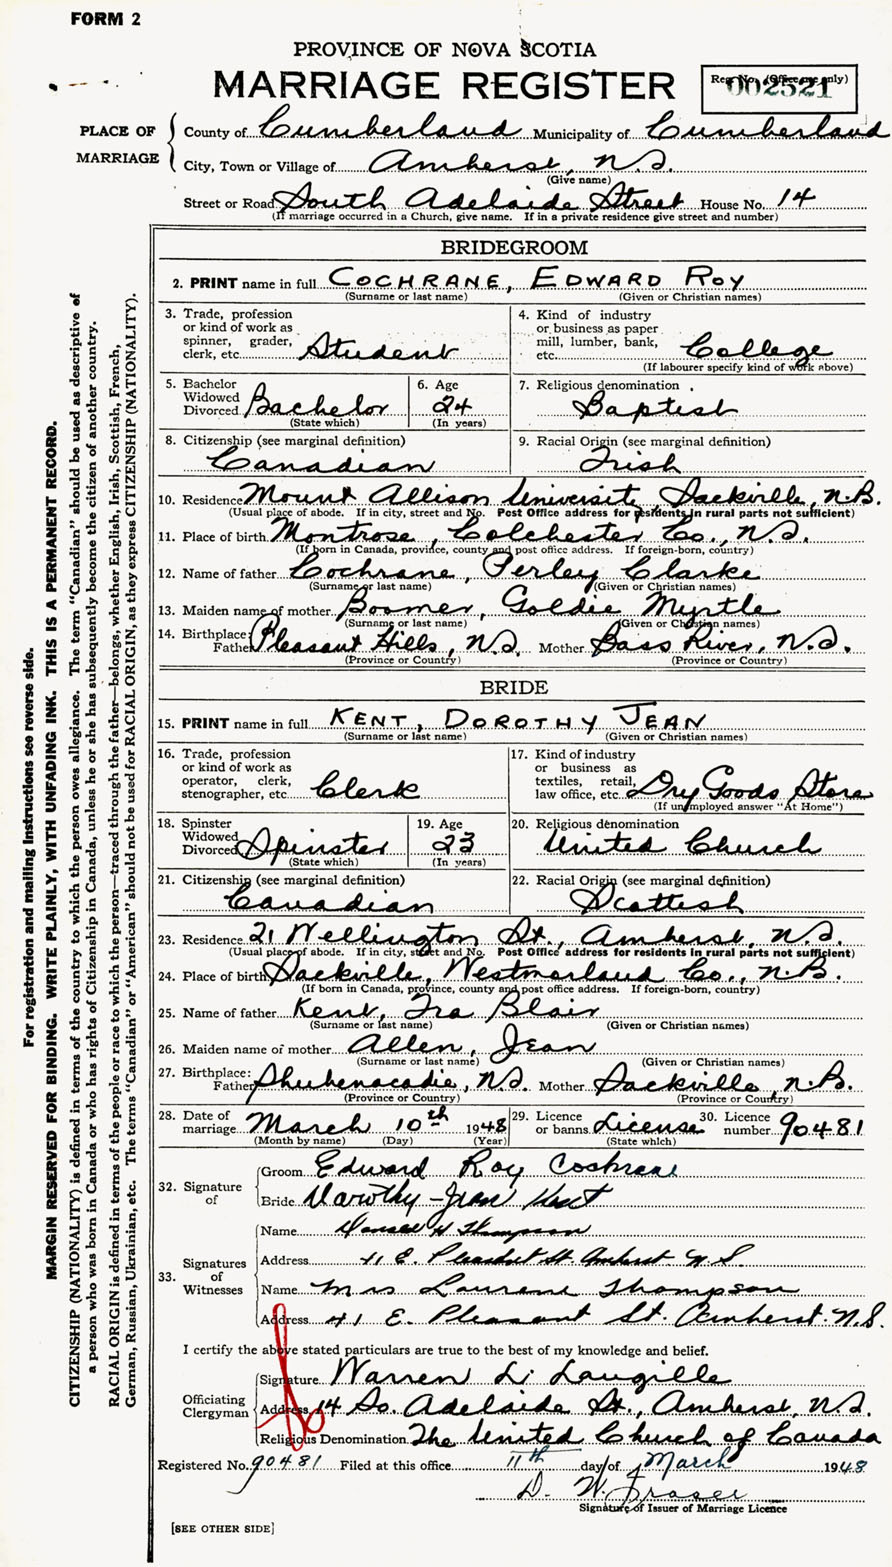 FORM 2
PROVINCE OF NOVA SCOTIA
MARRIAGE REGISTER
Reg. No. (Office use only)
002521
PLACE OF MARRIAGE
County of Cumberland Municipality of Cumberland
City, Town or Village of Amherst, N.S.
(Give name)
Street or Road South Adelaide Street House No. 14
(If marriage occurred in a Church, give name. If in a private residence give street and number)
BRIDEGROOM
2. PRINT name in full COCHRANE, EDWARD ROY
(Surname or last name) (Given or Christian names)
3. Trade, profession
or kind of work as
spinner, grader,
clerk, etc. Student
4. Kind of industry
or business as paper
mill, lumber, bank,
etc. College
(If labourer specify kind of work above)
5. Bachelor
Widowed
Divorced Bachelor
(State which)
6. Age
24
(In years)
7. Religious denomination
Baptist
8. Citizenship (see marginal definition)
Canadian
9. Racial Origin (see marginal definition)
Irish
10. Residence Mount Allison University, Sackville, N.B.
(Usual place of abode. If in city, street and No. Post Office address for residents in rural parts not sufficient)
11. Place of birth Montrose, Colchester Co., N.S.
(If born in Canada, province, county and post office address. If foreign-born, country)
12. Name of father Cochrane, Perley Clarke
(Surname or last name) (Given or Christian names)
13. Maiden name of mother Boomer, Goldie Myrtle
(Surname or last name) (Given or Christian names)
14. Birthplace:
Father Pleasant Hills, N.S. Mother Bass River, N.S.
(Province or Country) (Province or Country)
BRIDE
15. PRINT name in full KENT, DOROTHY JEAN
(Surname or last name) (Given or Christian names)
16. Trade, profession
or kind of work as
operator, clerk,
stenographer, etc. Clerk
17. Kind of industry
or business as
textiles, retail,
law office, etc. Dry Goods Store
(If unemployed answer "At Home")
18. Spinster
Widowed
Divorced Spinster
(State which)
19. Age
23
(In years)
20. Religious denomination
United Church
21. Citizenship (see marginal definition)
Canadian
22. Racial Origin (see marginal definition)
Scottish
23. Residence 21 Wellington St., Amherst, N.S.
(Usual place of abode. If in city, street and No. Post Office address for residents in rural parts not sufficient)
24. Place of birth Sackville, Westmorland Co., N.B.
(If born in Canada, province, county and post office address. If foreign-born, country)
25. Name of father Kent, Ira Blair
(Surname or last name) (Given or Christian names)
26. Maiden name of mother Allen, Jean
(Surname or last name) (Given or Christian names)
27. Birthplace:
Father Shubenacadie, N.S. Mother Sackville, N.B.
(Province or Country) (Province or Country)
28. Date of
marriage March 10th 1948
(Month by name) (Day) (Year)
29. Licence
or banns License
(State which)
30. Licence
number 90481
32. Signature of
Groom Edward Roy Cochrane
Bride Dorothy Jean Kent
33. Signatures of Witnesses
Name H Thompson
Address 41 E. Pleasant St. Amherst N.S.
Name Mrs Laurene Thompson
Address 41 E. Pleasant St. Amherst. N.S.
I certify the above stated particulars are true to the best of my knowledge and belief.
Officiating Clergyman
Signature Warren L. Langille
Address 14 So. Adelaide St., Amherst, N.S.
Religious Denomination The United Church of Canada
Registered No. 90481 Filed at this office 11th day of March 1948
D. W. Fraser
Signature of Issuer of Marriage Licence
[SEE OTHER SIDE]
For registration and mailing instructions see reverse side.
MARGIN RESERVED FOR BINDING. WRITE PLAINLY, WITH UNFADING INK. THIS IS A PERMANENT RECORD.
CITIZENSHIP (NATIONALITY) is defined in terms of the country to which the person owes allegiance. The term "Canadian" should be used as descriptive of
a person who was born in Canada or who has rights of Citizenship in Canada, unless he or she has subsequently become the citizen of another country.
RACIAL ORIGIN is defined in terms of the people or race to which the person—traced through the father—belongs, whether English, Irish, Scottish, French,
German, Russian, Ukrainian, etc. The terms "Canadian" or "American" should not be used for RACIAL ORIGIN, as they express CITIZENSHIP (NATIONALITY).